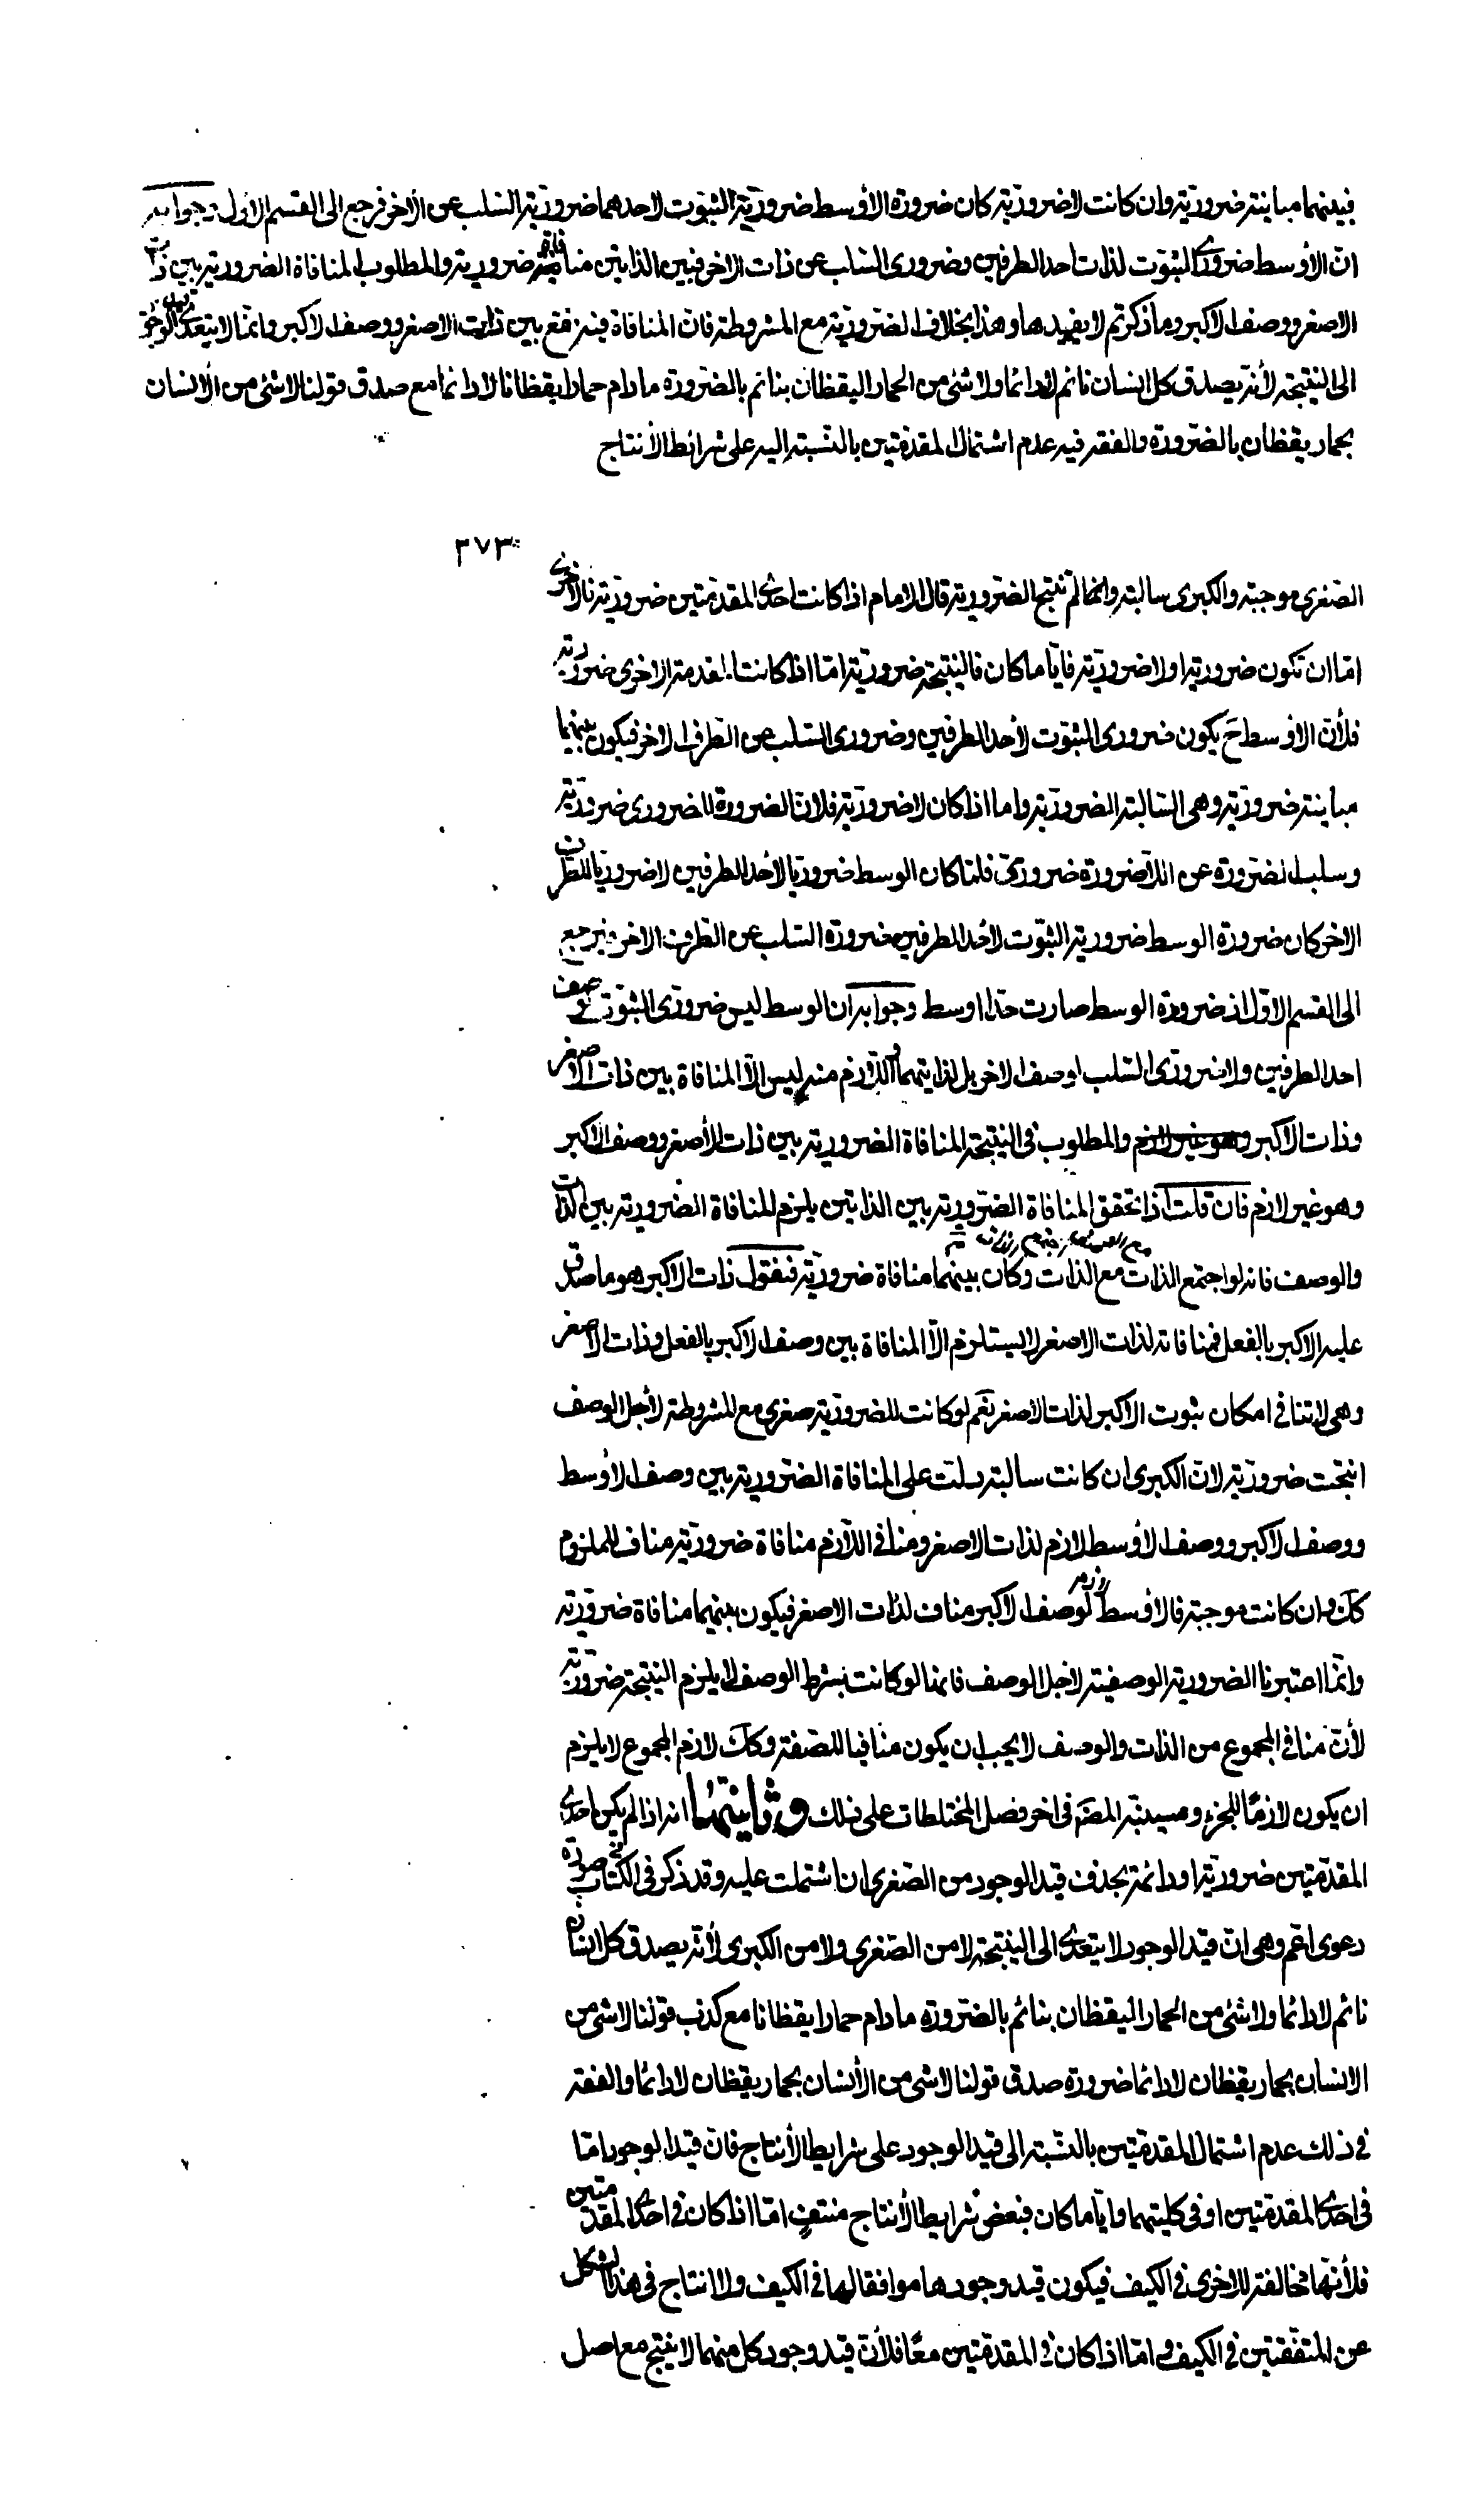 فبينهما مباينة ضرورية وان كانت لاضرورية كان ضرورة الأوسط ضرورية الثبوت لاحدهما ضرورية السلب عن الآخر فرجع الى القسم الاول وجوابه
ان الأوسط ضروري الثبوت لذات احد الطرفين وضروري السلب عن ذات الآخر فبين الذاتين منافاة ضرورية والمطلوب المنافاة الضرورية بين ذات
الاصغر ووصف الاكبر وما ذكرتم لا يفيدها وهذا بخلاف الضرورية مع المشروطة فان المنافاة فيه تقع بين ذات الاصغر ووصف الاكبر وانما لا يتعدى قيد الوجود
الى النتيجة لأنه يصدق كل انسان نائم لادائما ولا شئ من الحمار اليقظان بنائم بالضرورة مادام حمارا يقظانا لادائما مع صدق قولنا لا شئ من الأنسان
بحمار يقظان بالضرورة والفقه فيه عدم اشتمال المقدمتين بالنسبة اليه على شرائط الأنتاج
٣٧٣
الصغرى موجبة والكبرى سالبة وانما لم تنتج الضرورية قال الامام اذا كانت احدى المقدمتين ضرورية فالاخرى
اما ان تكون ضرورية او لاضرورية فايا ما كان فالنتيجة ضرورية اما اذا كانت المقدمة الاخرى ضرورية
فلأن الأوسط ح يكون ضروري الثبوت لأحد الطرفين وضروري السلب عن الطرف الاخر فيكون بينهما
مباينة ضرورية وهي السالبة الضرورية واما اذا كان لاضرورية فلان الضرورة للضروري ضرورية
وسلب الضرورة عن اللاضرورة ضروري فلما كان الوسط ضروريا لاحد الطرفين لاضروريا للطرف
الاخر كان ضرورة الوسط ضرورية الثبوت لأحد الطرفين ضرورة السلب عن الطرف الاخر فيرجع
الى القسم الاول اذ ضرورة الوسط صارت حدا اوسط وجوابه ان الوسط ليس ضروري الثبوت لوصف
احد الطرفين ولا ضروري السلب لوصف الاخر بل لذاتيهما واللازم منه ليس الا المنافاة بين ذات الاصغر
وذات الاكبر وهو غير لازم والمطلوب في النتيجة المنافاة الضرورية بين ذات الأصغر ووصف الاكبر
وهو غير لازم فان قلت اذا تحقق المنافاة الضرورية بين الذاتين يلزم المنافاة الضرورية بين الذات
والوصف فانه لو اجتمع الذات مع الذات وكان بينهما منافاة ضرورية فنقول ذات الاكبر هو ما صدق
عليه الاكبر بالفعل فمنافاته لذات الاصغر لا يستلزم الا المنافاة بين وصف الاكبر بالفعل وذات الاصغر
وهي لا تنافي امكان ثبوت الاكبر لذات الاصغر نعم لو كانت الضرورية صغرى مع المشروطة لأجل الوصف
انتجت ضرورية لان الكبرى ان كانت سالبة دلت على المنافاة الضرورية بين وصف الاوسط
ووصف الاكبر ووصف الأوسط لازم لذات الاصغر ومنافي اللازم منافاة ضرورية مناف للملزوم
كك وان كانت موجبة فالاوسط لازم لوصف الاكبر مناف لذات الاصغر فيكون بينهما منافاة ضرورية
وانما اعتبرنا الضرورية الوصفية لاجل الوصف فانها لو كانت بشرط الوصف لا يلزم النتيجة ضرورية
لأن منافي المجموع من الذات والوصف لا يجب ان يكون منافيا للصفة وكك لازم المجموع لا يلزم
ان يكون لازما للجزء وسينبه المصنف في اخر فصل المختلطات على ذلك وثانيتهما انه اذا لم يكن احدى
المقدمتين ضرورية او دائمة يحذف قيد الوجود من الصغرى ان اشتملت عليه وقد ذكر في الكتاب في صورة
دعوى اعم وهي ان قيد الوجود لا يتعدى الى النتيجة لا من الصغرى ولا من الكبرى لأنه يصدق كل انسان
نائم لادائما ولا شئ من الحمار اليقظان بنائم بالضرورة مادام حمارا يقظانا مع كذب قولنا لا شئ من
الانسان بحمار يقظان لادائما ضرورة صدق قولنا لا شئ من الأنسان بحمار يقظان لادائما والفقه
في ذلك عدم اشتمال المقدمتين بالنسبة الى قيد الوجود على شرايط الأنتاج فان قيد الوجود اما
في احدى المقدمتين او في كليتهما وايا ما كان فبعض شرايط الأنتاج منتف اما اذا كان في احدى المقدمتين
فلأنها مخالفة للاخرى في الكيف فيكون قيد وجودها موافقا لها في الكيف ولا انتاج في هذا الشكل
عن المتفقتين في الكيف واما اذا كان في المقدمتين معا فلأن قيد وجود كل منهما لا ينتج مع اصل